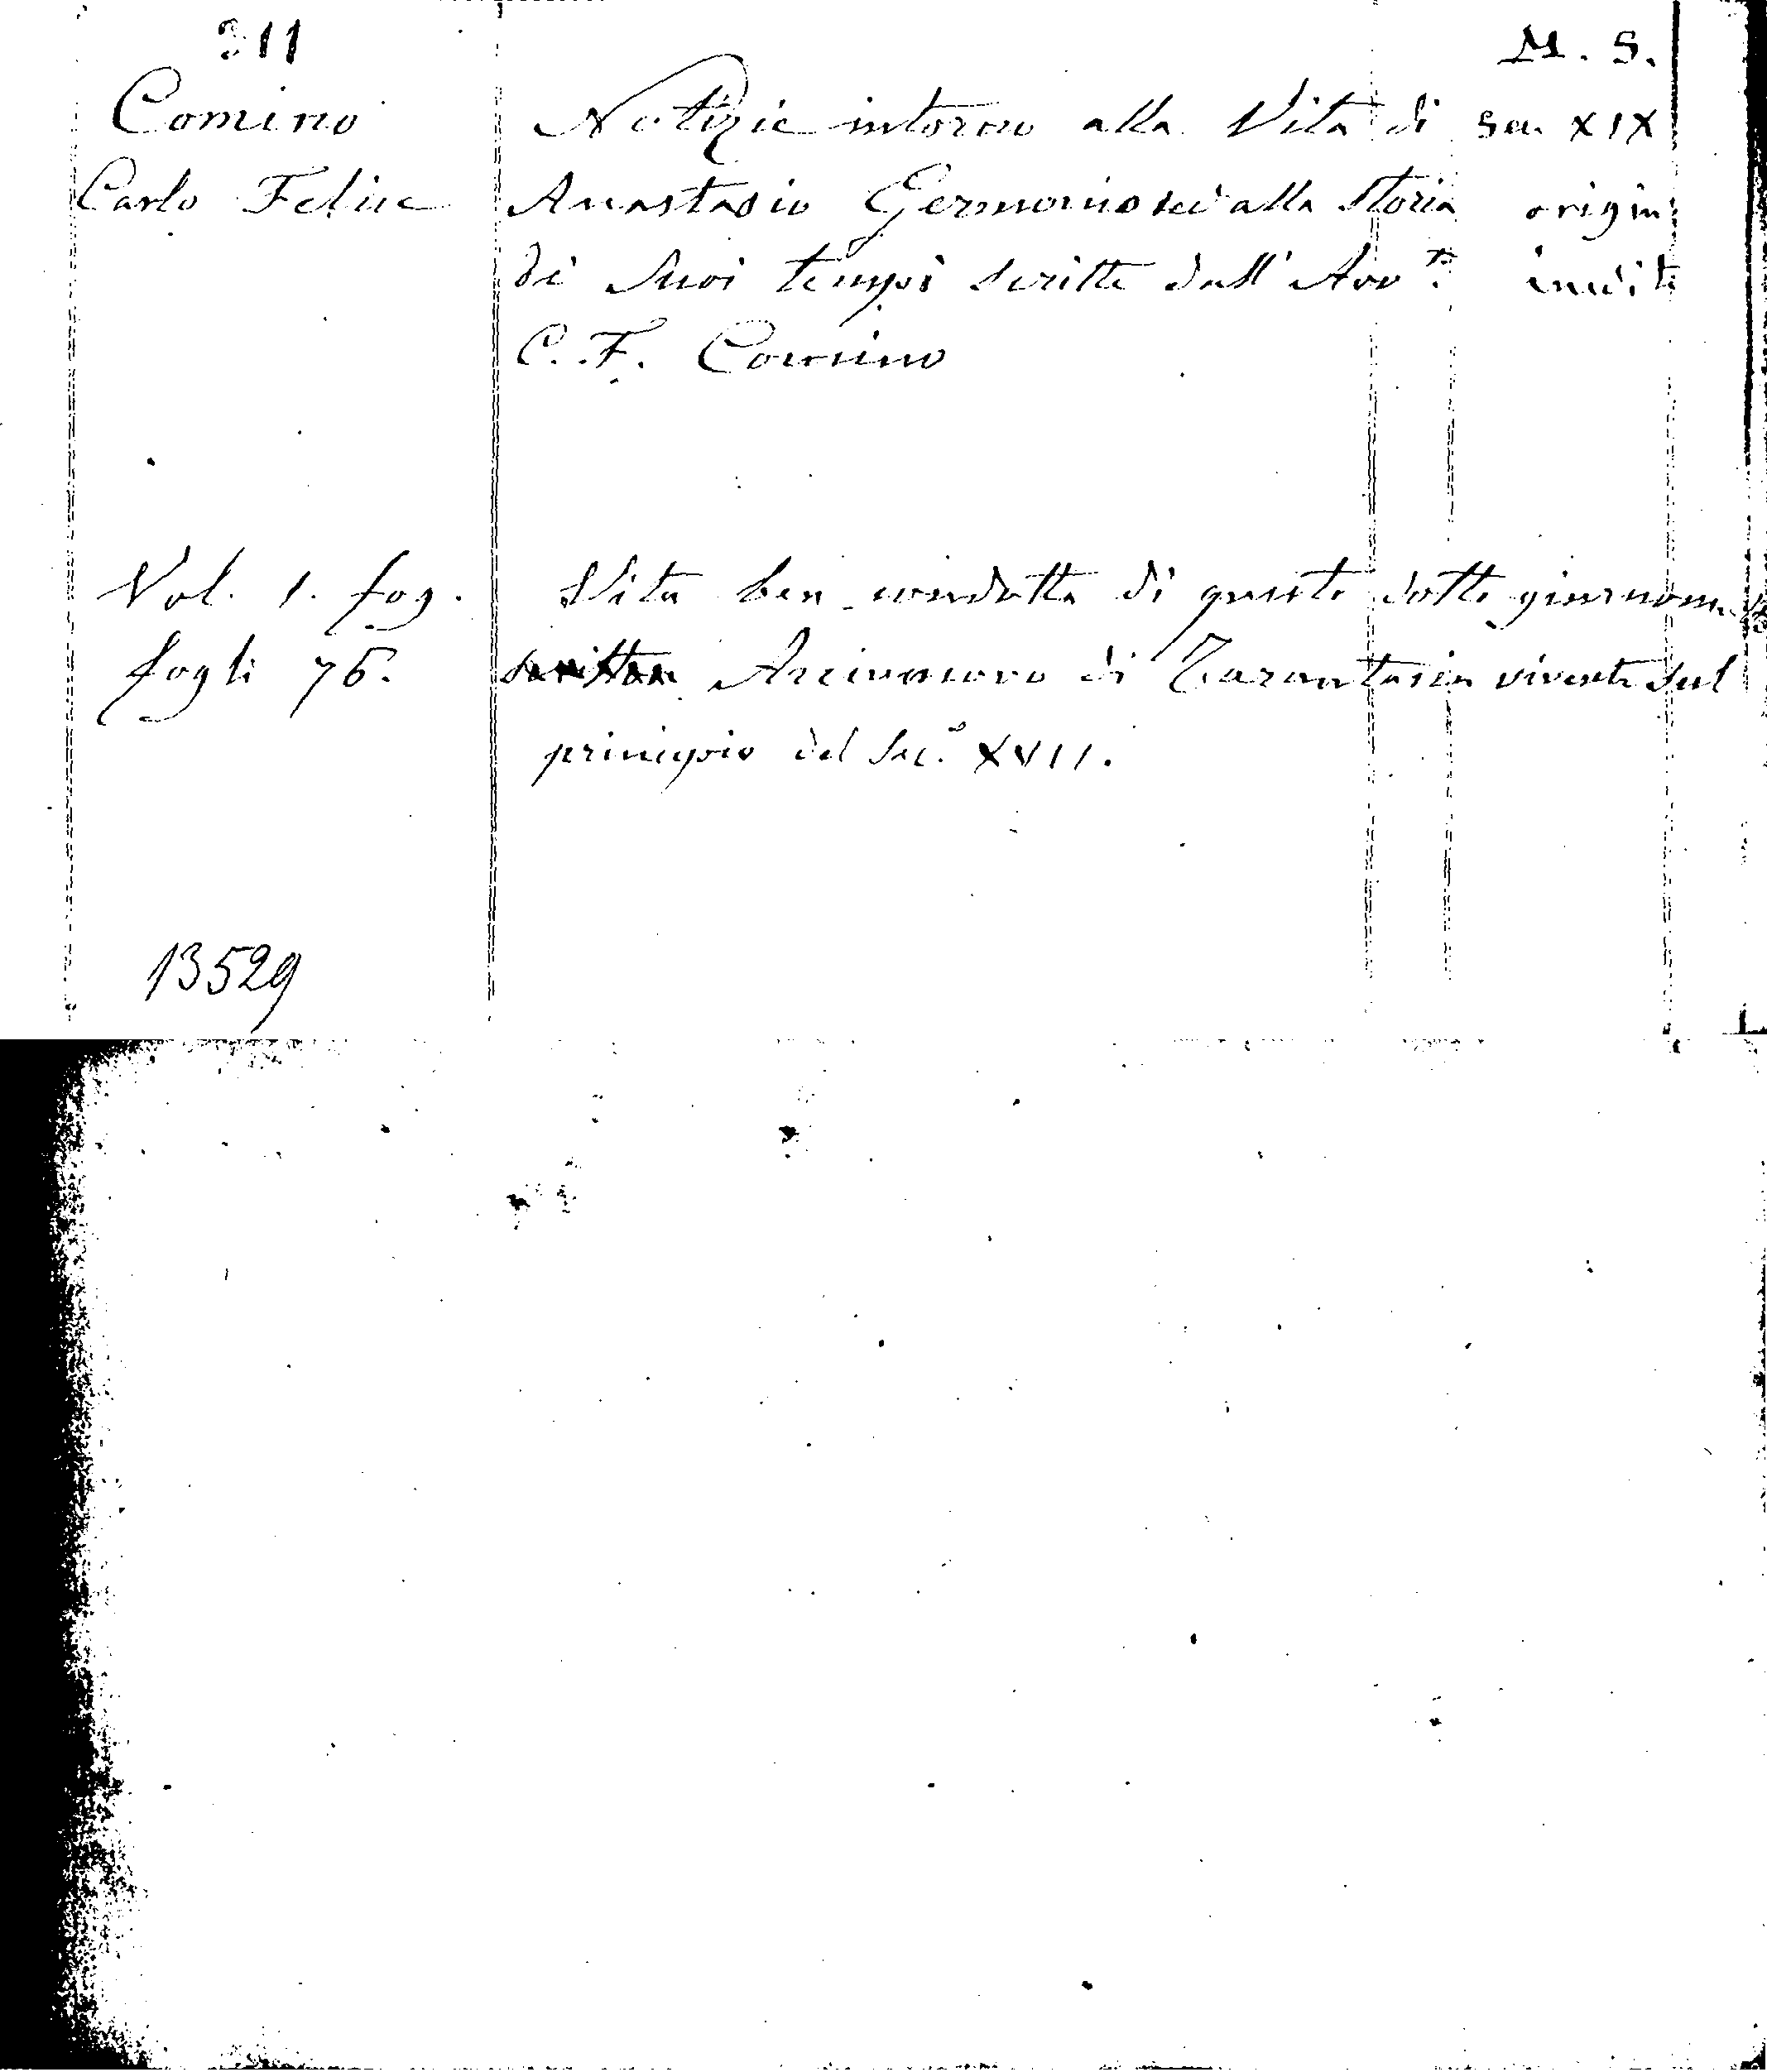 311
M. S.
Comino
Carlo Felice
Notizie intorno alla Vita di
Anastasio Germonio ed alla Storia
di Suoi tempi scritte dall' Avv.to
C. F. Comino
Sec. XIX
origin
inedito
Vol. 1. fog.
fogli 76.
Vita ben condotta di questo dotto
Arcivescovo di Tarantasia vivente sul
principio del Sec.o XVII.
13529